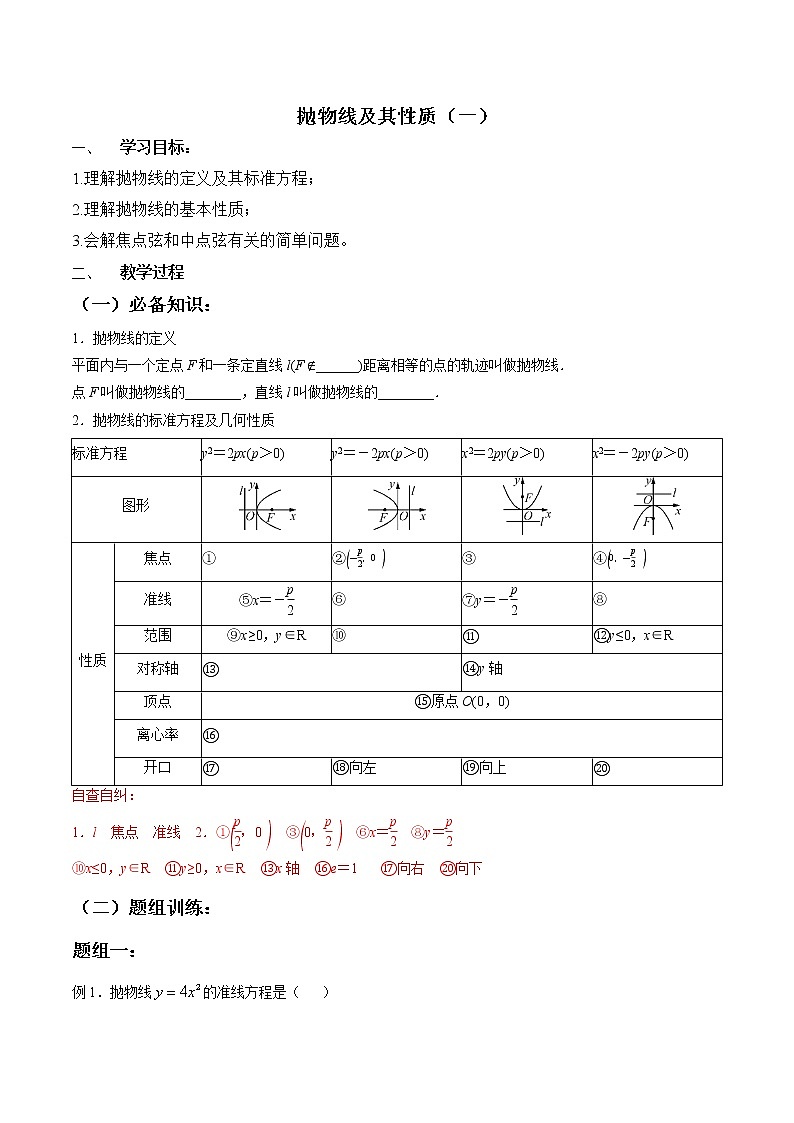 抛物线及其性质（一）
一、 学习目标：
1.理解抛物线的定义及其标准方程；
2.理解抛物线的基本性质；
3.会解焦点弦和中点弦有关的简单问题。
二、 教学过程
（一）必备知识：
1．抛物线的定义
平面内与一个定点 F 和一条定直线 l(F∉______)距离相等的点的轨迹叫做抛物线．
点 F 叫做抛物线的________，直线 l 叫做抛物线的________．
2．抛物线的标准方程及几何性质
标准方程 y²＝2px(p＞0) y²＝－2px(p＞0) x²＝2py(p＞0) x²＝－2py(p＞0)
图形 l y O F x y l F O x y F O l x y O l F x
焦点 ① ②(－p/2，0) ③ ④(0，－p/2)
准线 ⑤x＝－p/2 ⑥ ⑦y＝－p/2 ⑧
范围 ⑨x≥0，y∈R ⑩ ⑪ ⑫y≤0，x∈R
性质
对称轴 ⑬ ⑭y 轴
顶点 ⑮原点 O(0，0)
离心率 ⑯
开口 ⑰ ⑱向左 ⑲向上 ⑳
自查自纠：
1．l 焦点 准线 2．①(p/2，0) ③(0，p/2) ⑥x＝p/2 ⑧y＝p/2
⑩x≤0，y∈R ⑪y≥0，x∈R ⑬x 轴 ⑯e＝1 ⑰向右 ⑳向下
（二）题组训练：
题组一：
例 1．抛物线 y = 4x² 的准线方程是（ ）